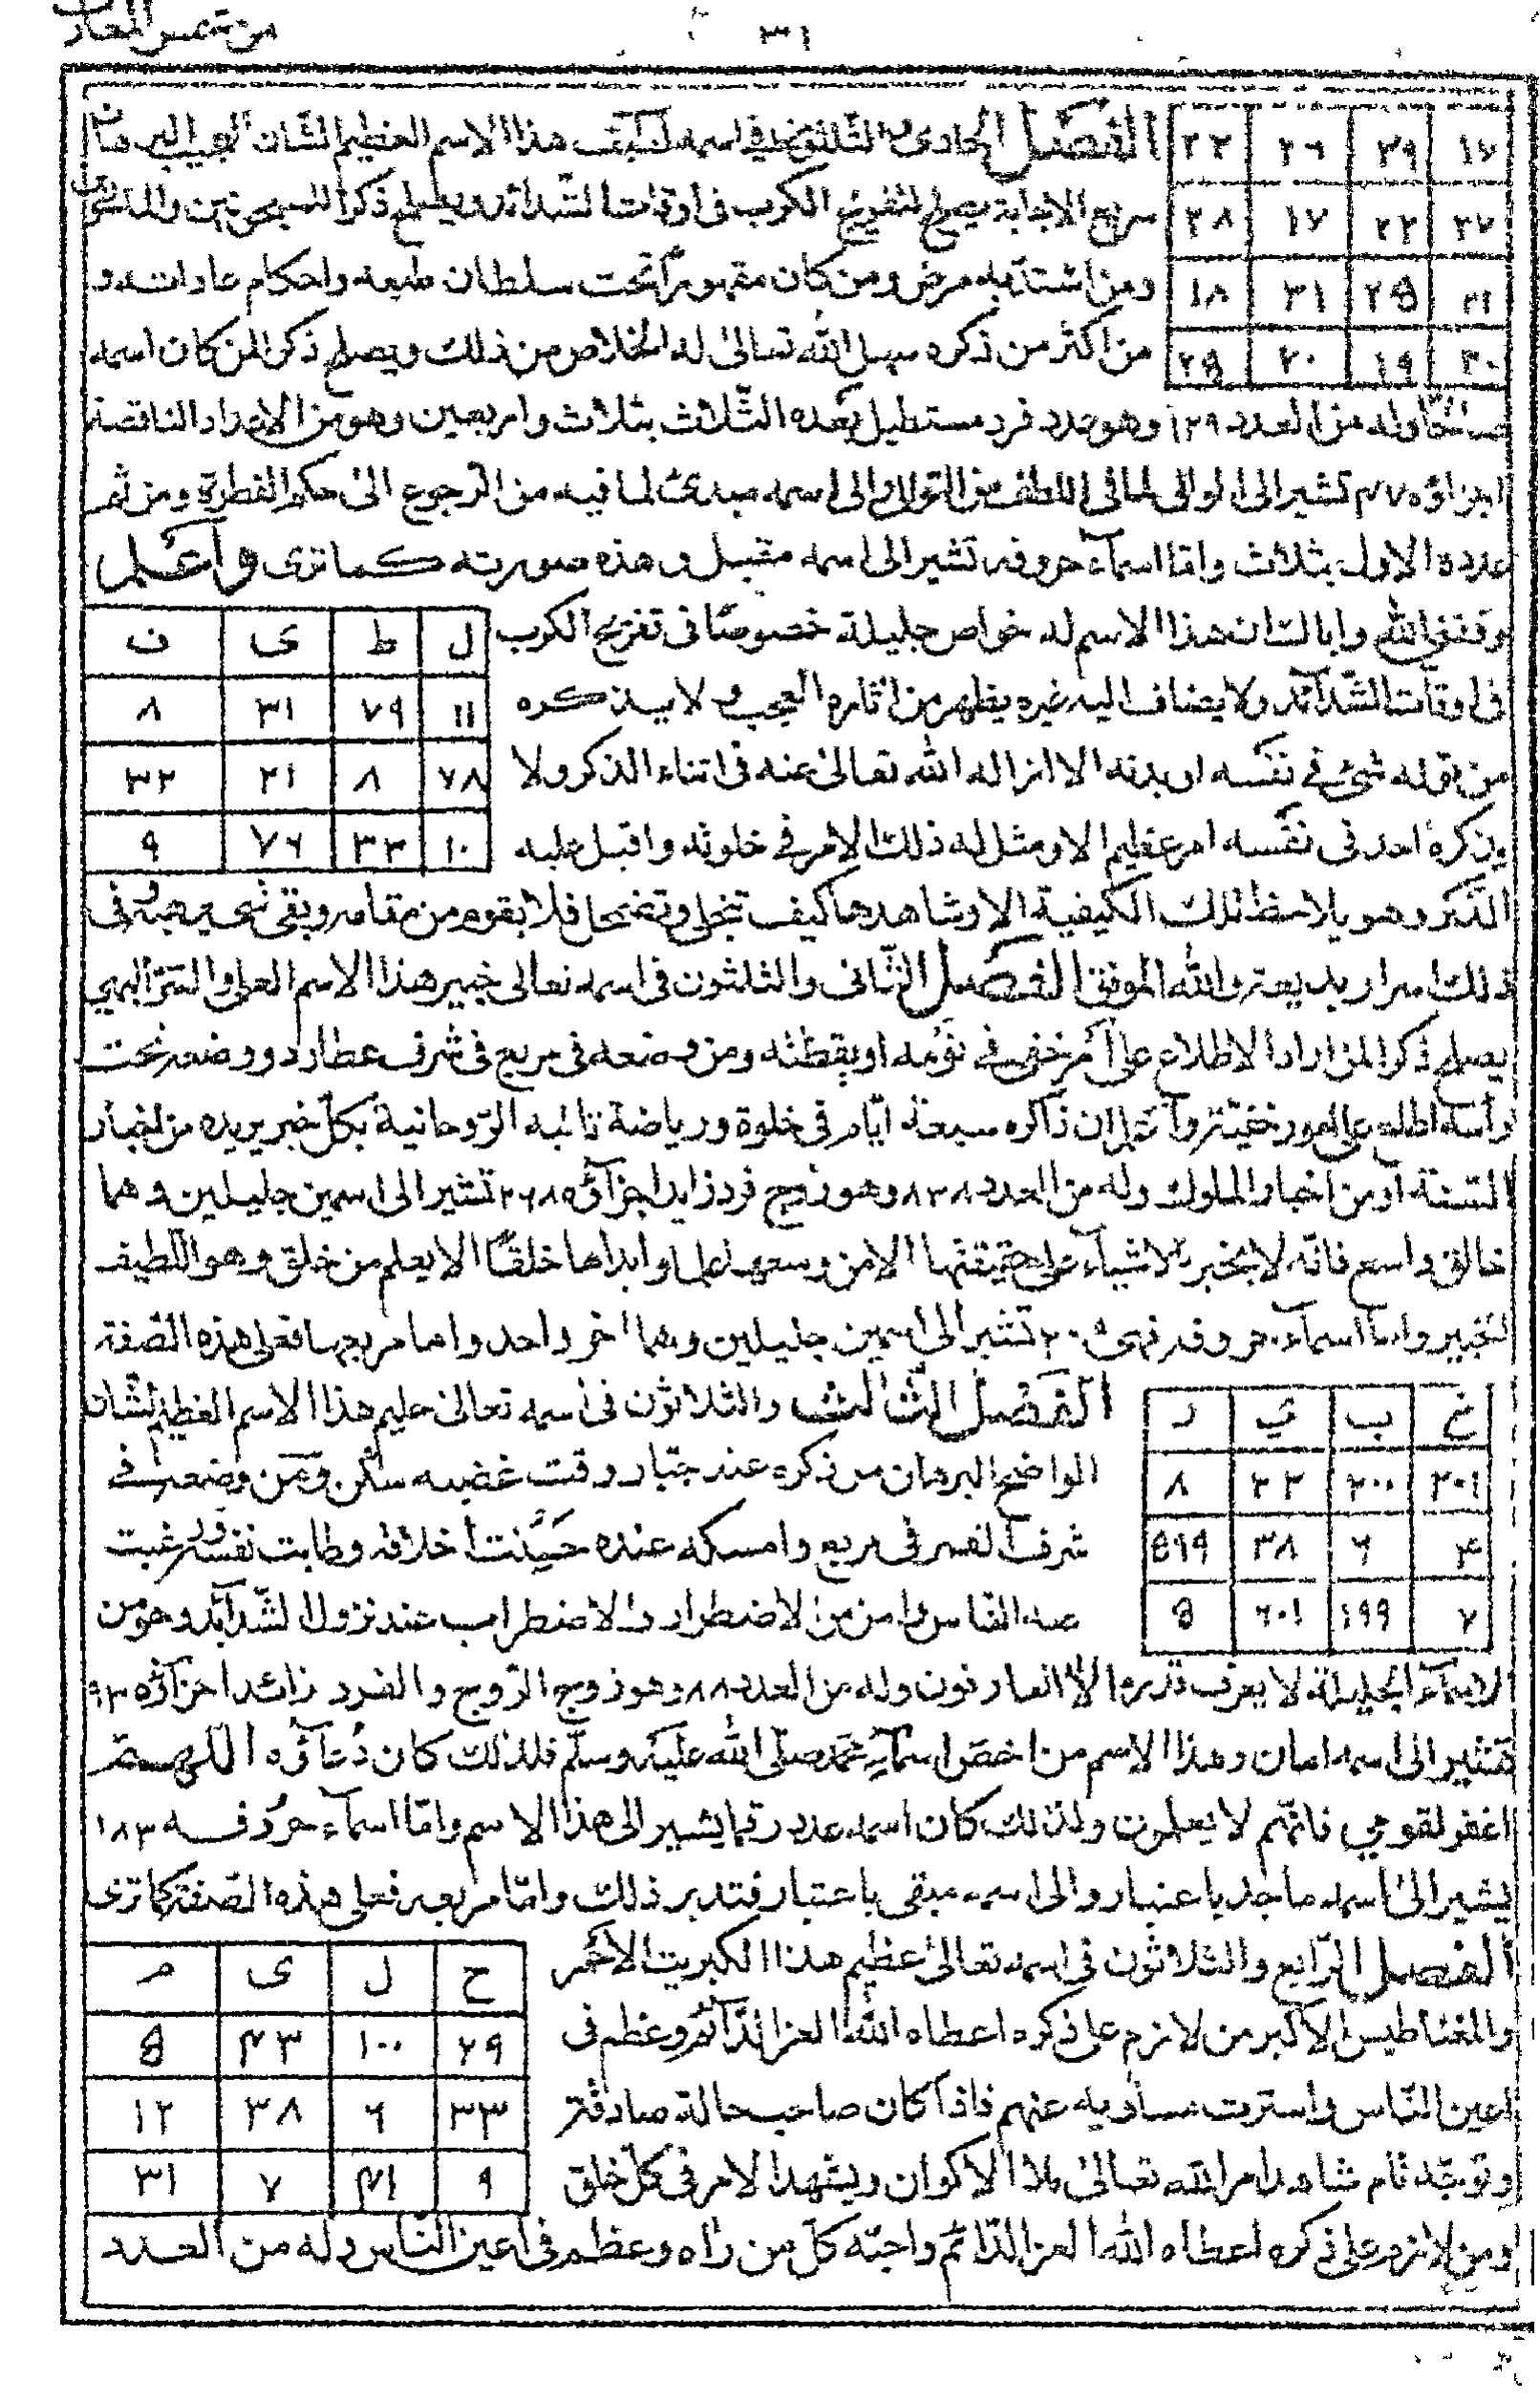 من شمس المعارف
٣١
١٧ ٢٩ ٢٦ ٢٢ الفصل الحادى والثلثون فى اسمه لطيف هذا الاسم العظيم الشان العجيب البرهان
٢٧ ٢٢ ١٧ ٢٨ سريع الاجابة يصلح لتفريج الكرب فى اوقات الشدائد ويصلح ذكرا للمسجونين
٢١ ٢٥ ٣١ ١٨ ومن اشتد به مرض ومن كان مقهورا تحت سلطان طبعه واحكام عاداته و
٣٠ ١٩ ٢٠ ٢٥ من اكثر من ذكره سهل الله تعالى له الخلاص من ذلك ويصلح ذكرا لمن كان اسمه
وله من العدد ١٢٩ وهو عدد فرد مستطيل بعده الثلاث بثلاث واربعين وهو من الاعداد الناقصة
اجزاؤه ٤٧ تشير الى الوالى لما فى اللطف من التوالى والى اسمه مبدئ لما فيه من الرجوع الى حكم الفطرة ومن ثم
عدده الاول بثلاث واما اسمآء حروفه تشير الى اسمه مقبل وهذه صورته كما ترى واعلم
وفقنى الله واياك ان هذا الاسم له خواص جليلة خصوصا فى تفريج الكرب ل ط ى ف
فى اوقات الشدآئد ولا يضاف اليه غيره يظهر من اثاره العجب و لا يذكره ١١ ٧٩ ٣١ ٨
من شئ فى نفسه او بدنه الا ازاله الله تعالى عنه فى اثناء الذكر ولا ٧٨ ٨ ٢١ ٣٢
يذكره احد فى نفسه امر عظيم الا ومثل له ذلك الامر فى خلوته واقبل عليه ١٠ ٣٣ ٧٦ ٩
الذكر وهو يلاحظ تلك الكيفية الا وشاهدها كيف تنحل وتضمحل فلا يقوم من مقامه وبقى شئ فى
ذلك اسرار بديعة والله الموفق الفصل الثانى والثلثون فى اسمه تعالى خبير هذا الاسم العلى والسر البهى
يصلح ذكرا لمن اراد الاطلاع على امر خفى فى نومه او يقظته ومن وضعه فى مربع فى شرف عطارد ووضعه تحت
راسه اطلع على امور خفية واعلم ان ذاكره سبعة ايام فى خلوة ورياضة تاتيه الروحانية بكل خبر يريده من اخبار
السنة او من اخبار الملوك وله من العدد ٨٣٨ وهو زوج فرد زايد اجزآؤه ٢٦٨٥ تشير الى اسمين جليلين وهما
خالق واسع فانه لا يخبر بالاشيآء على حقيقتها الا من وسعها علما وابداها خلقا الا يعلم من خلق وهو اللطيف
الخبير واما اسمآء حروفه فهى تشير الى اسمين جليلين وهما اخر واحد واما مربعها فعلى هذه الصفة
خ ب ي ر الفصل الثالث والثلاثون فى اسمه تعالى عليم هذا الاسم العظيم الشان
٢٠١ ٢٠٠ ٢٣ ٨ الواضح البرهان من ذكره عند جبار وقت غضبه سكن ومن وضعه فى
٤ ٦ ٣٨ ٥٩٩ شرف القمر فى مربع وامسكه عنده حسنت اخلاقه وطابت نفسه ورغبت
٧ ١٩٩ ٦٠١ ٥ الناس وامن من الاضطرار والاضطراب عند نزول الشدآئد وهو من
الاسمآء الجليلة لا يعرف قدره الا العارفون وله من العدد ٨٨ وهو زوج الزوج والفرد زائد اجزآؤه ٩٢
تشير الى اسمه امان وهذا الاسم من اخص اسمآء محمد صلى الله عليه وسلم فلذلك كان دعآؤه اللهم
اغفر لقومي فانهم لا يعلمون ولذلك كان اسمه عدد رقما يشير الى هذا الاسم واما اسمآء حروفه ١٨٣
يشير الى اسمه ماجد باعتبار والى اسمه مبقى باعتبار فتدبر ذلك واما مربعه فعلى هذه الصفة كما ترى
الفصل الرابع والثلاثون فى اسمه تعالى عظيم هذا الكبريت الاحمر ح ل ى م
والمغناطيس الاكبر من لازم على ذكره اعطاه الله العز الدآئم وعظم فى ٢٩ ١٠٠ ٤٣ ٥
اعين الناس واسترت مساويه عنهم فاذا كان صاحب حالة صادقة ٣٣ ٦ ٣٨ ١٢
وتوجه تام شاهد امر الله تعالى الاكوان ويشهد الامر فى كل خلق ٩ ٤١ ٧ ٣١
ومن لازم على ذكره اعطاه الله العز الدائم واحبه كل من راه وعظم فى اعين الناس وله من العدد